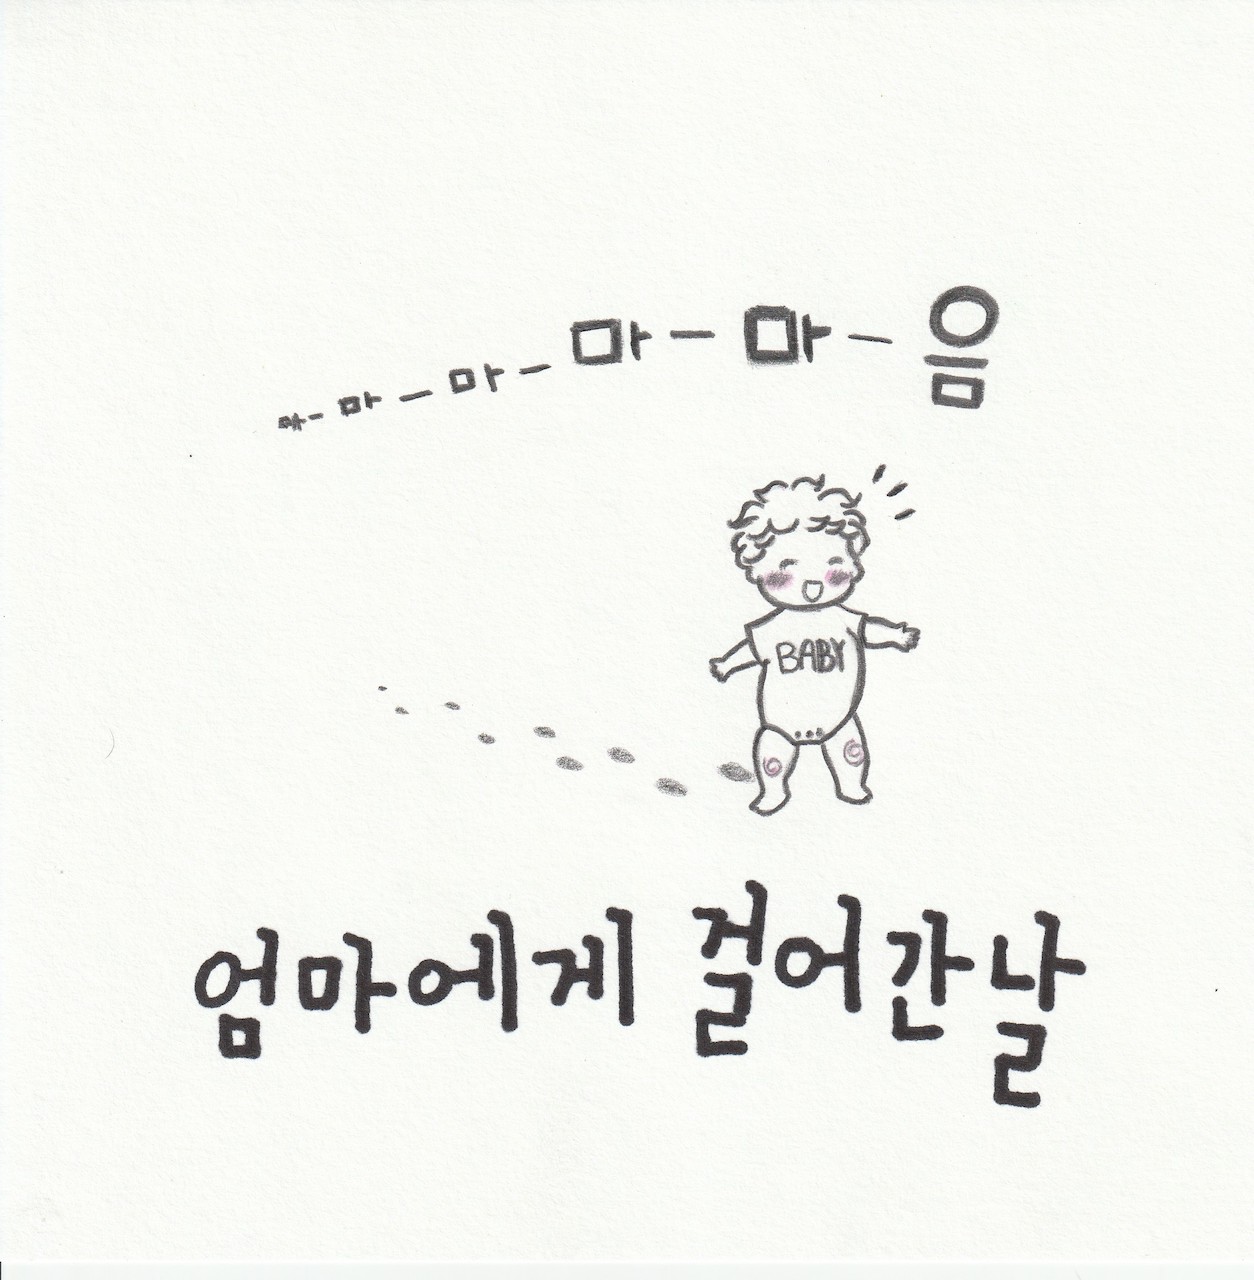 마-마-마-마-마-음
BABY
엄마에게 걸어간날